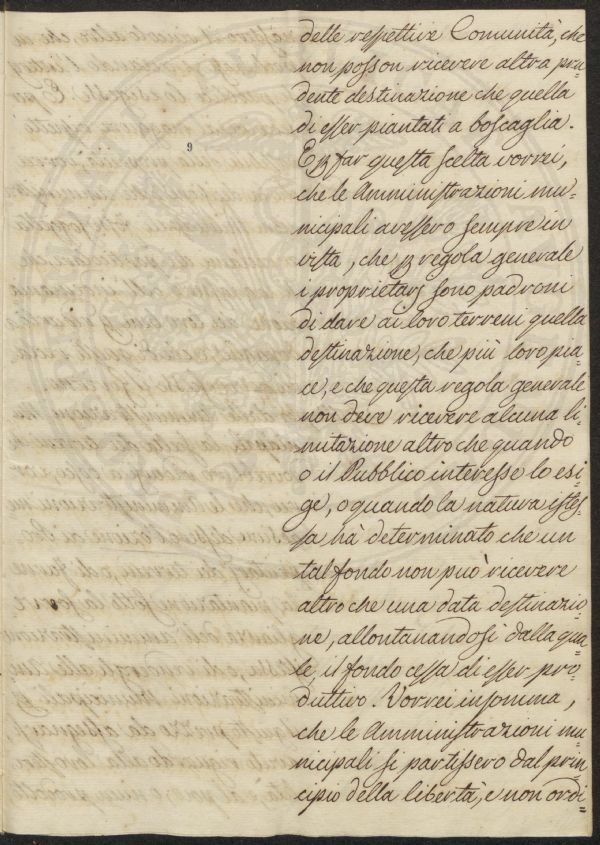 delle respettive Comunità, che
non posson ricevere altra pru=
dente destinazione che quella
di esser piantati a boscaglia.
E ꝑ far questa scelta vorrei,
che le Amministrazioni mu=
nicipali avessero sempre in
vista, che ꝑ regola generale
i proprietarj sono padroni
di dare ai loro terreni quella
destinazione, che più loro pia=
ce, e che questa regola generale
non deve ricevere alcuna li=
mitazione altro che quando
o il Pubblico interesse lo esi=
ge, o quando la natura istes=
sa hà determinato che un
tal fondo non può ricevere
altro che una data destinazio=
ne, allontanandosi dalla qua=
le, il fondo cessa di esser pro=
duttivo. Vorrei insomma,
che le Amministrazioni mu=
nicipali si partissero dal prin=
cipio della libertà, e non ordi=
9